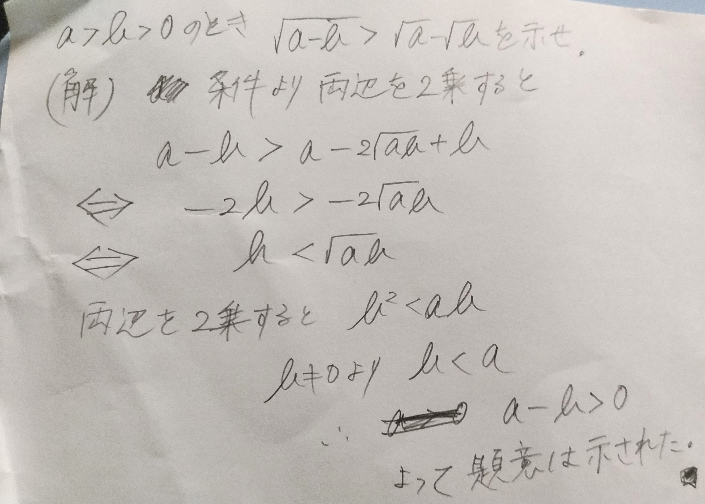 a>b>0のとき √(a-b) > √a-√b を示せ.
(解) 条件より 両辺を2乗すると
a-b > a-2√ab+b
⇔ -2b > -2√ab
⇔ b < √ab
両辺を2乗すると b²<ab
b≠0より b<a
∴ a-b>0
よって題意は示された.